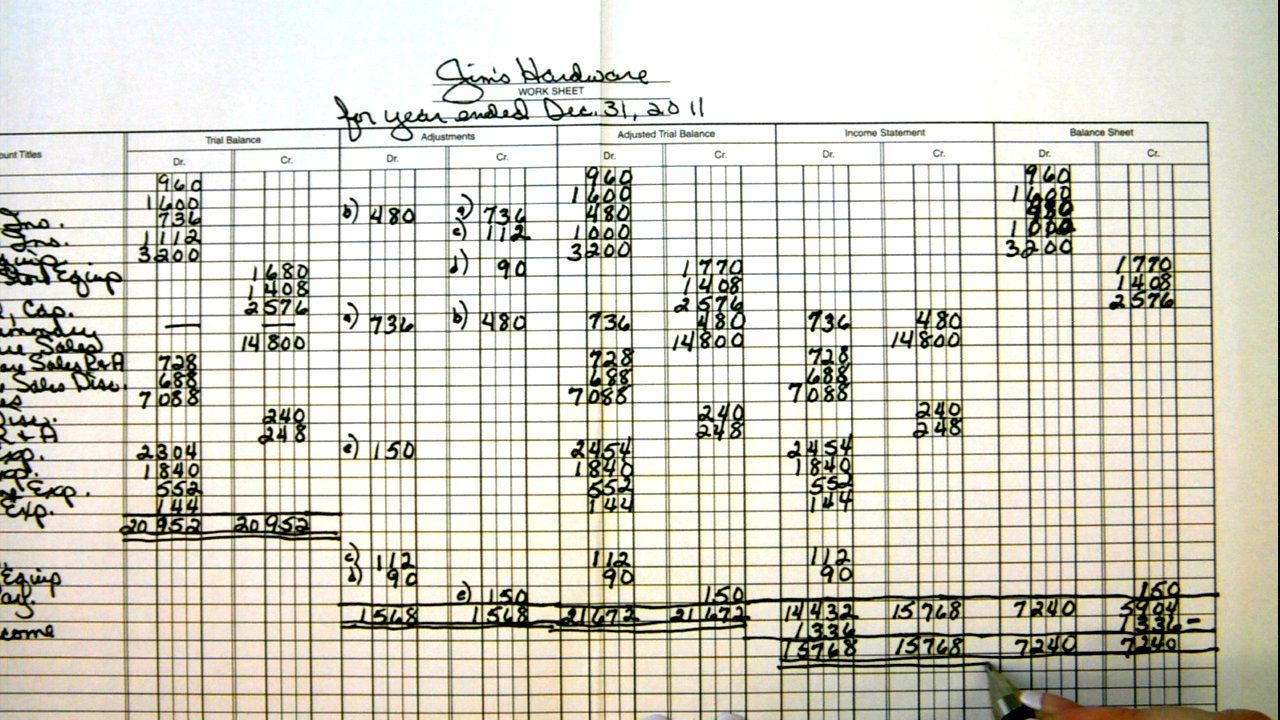 Jim's Hardware
WORK SHEET
for year ended Dec. 31, 2011
Trial Balance Adjustments Adjusted Trial Balance Income Statement Balance Sheet
ount Titles Dr. Cr. Dr. Cr. Dr. Cr. Dr. Cr. Dr. Cr.
960 960 960
1600 1600 1600
Ins. 736 b) 480 a) 736 480 480
Ins. 1112 c) 112 1000 1000
Equip. 3200 3200 3200
Equip 1680 d) 90 1770 1770
1408 1408 1408
Cap. 2576 2576 2576
ummary — — a) 736 b) 480 736 480 736 480
Sales 14800 14800 14800
Sales R+A 728 728 728
Sales Disc. 688 688 688
7088 7088 7088
Disc. 240 240 240
R + A 248 248 248
Exp. 2304 e) 150 2454 2454
xp. 1840 1840 1840
Exp. 552 552 552
Exp. 144 144 144
20952 20952
c) 112 112 112
Equip d) 90 90 90
e) 150 150 150
1568 1568 21672 21672 14432 15768 7240 5904
come 1336 1336 –
15768 15768 7240 7240